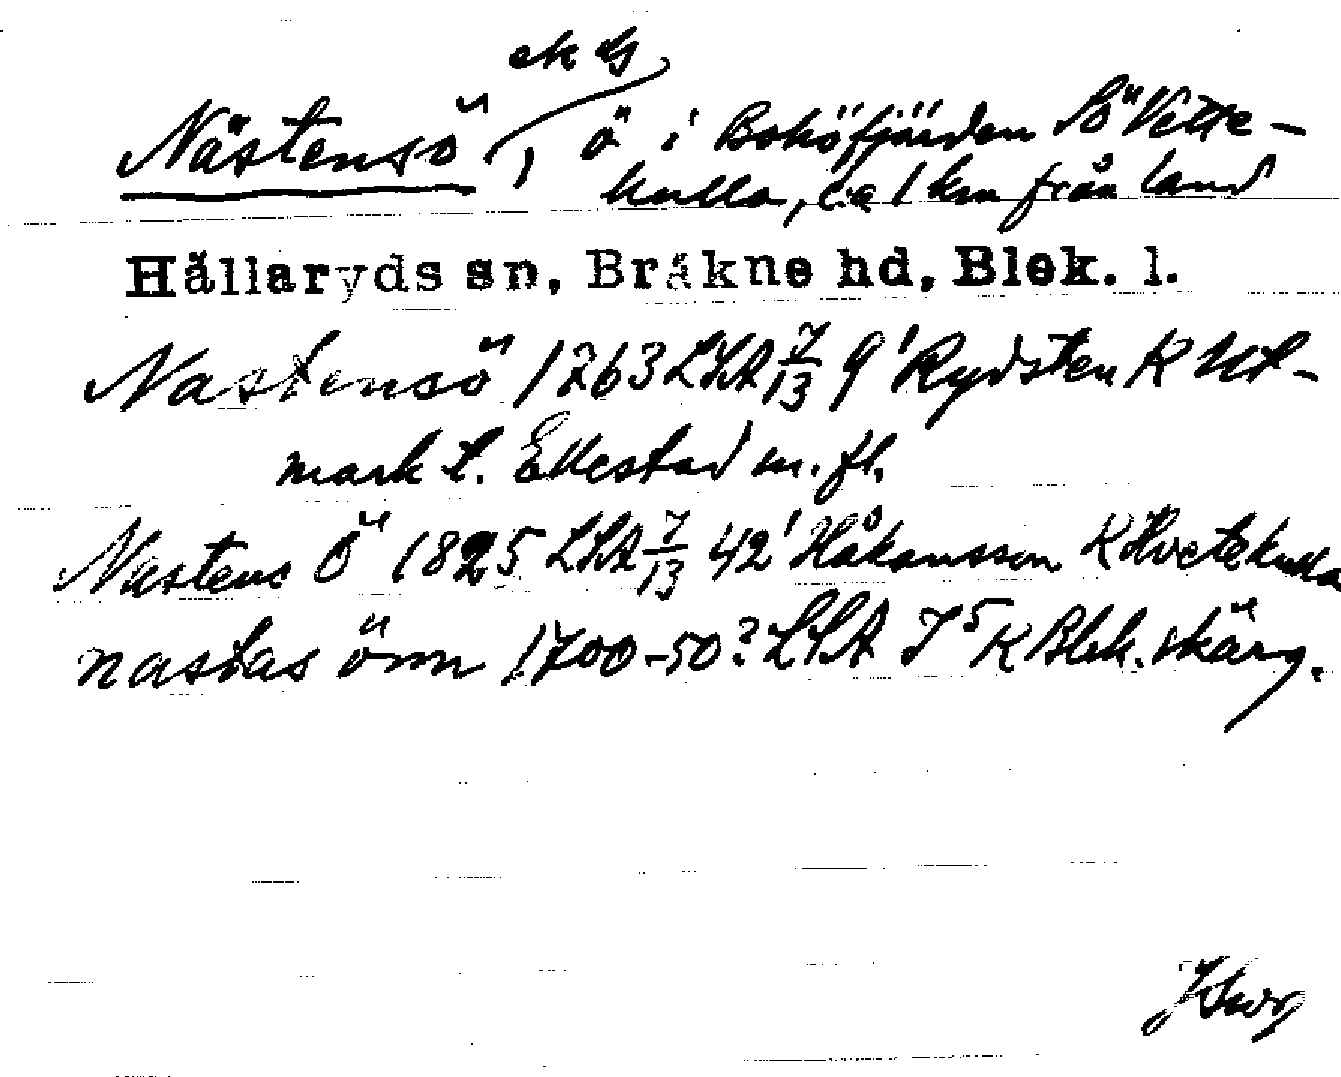 ek G
Nästensö, ö i Boköfjärden Sö Vette-
kulla, ca 1 km från land
Hällaryds sn, Bräkne hd, Blek. l.
Nastensö 1763 LSA 7/13 9' Rydsten K Ut-
mark t. Ellestad m. fl.
Nastens Ö 1825 LSA 7/13 42' Håkansson K Hvetekulla
nastas önn 1700-50? LSA I 5 K Blek. skärg.